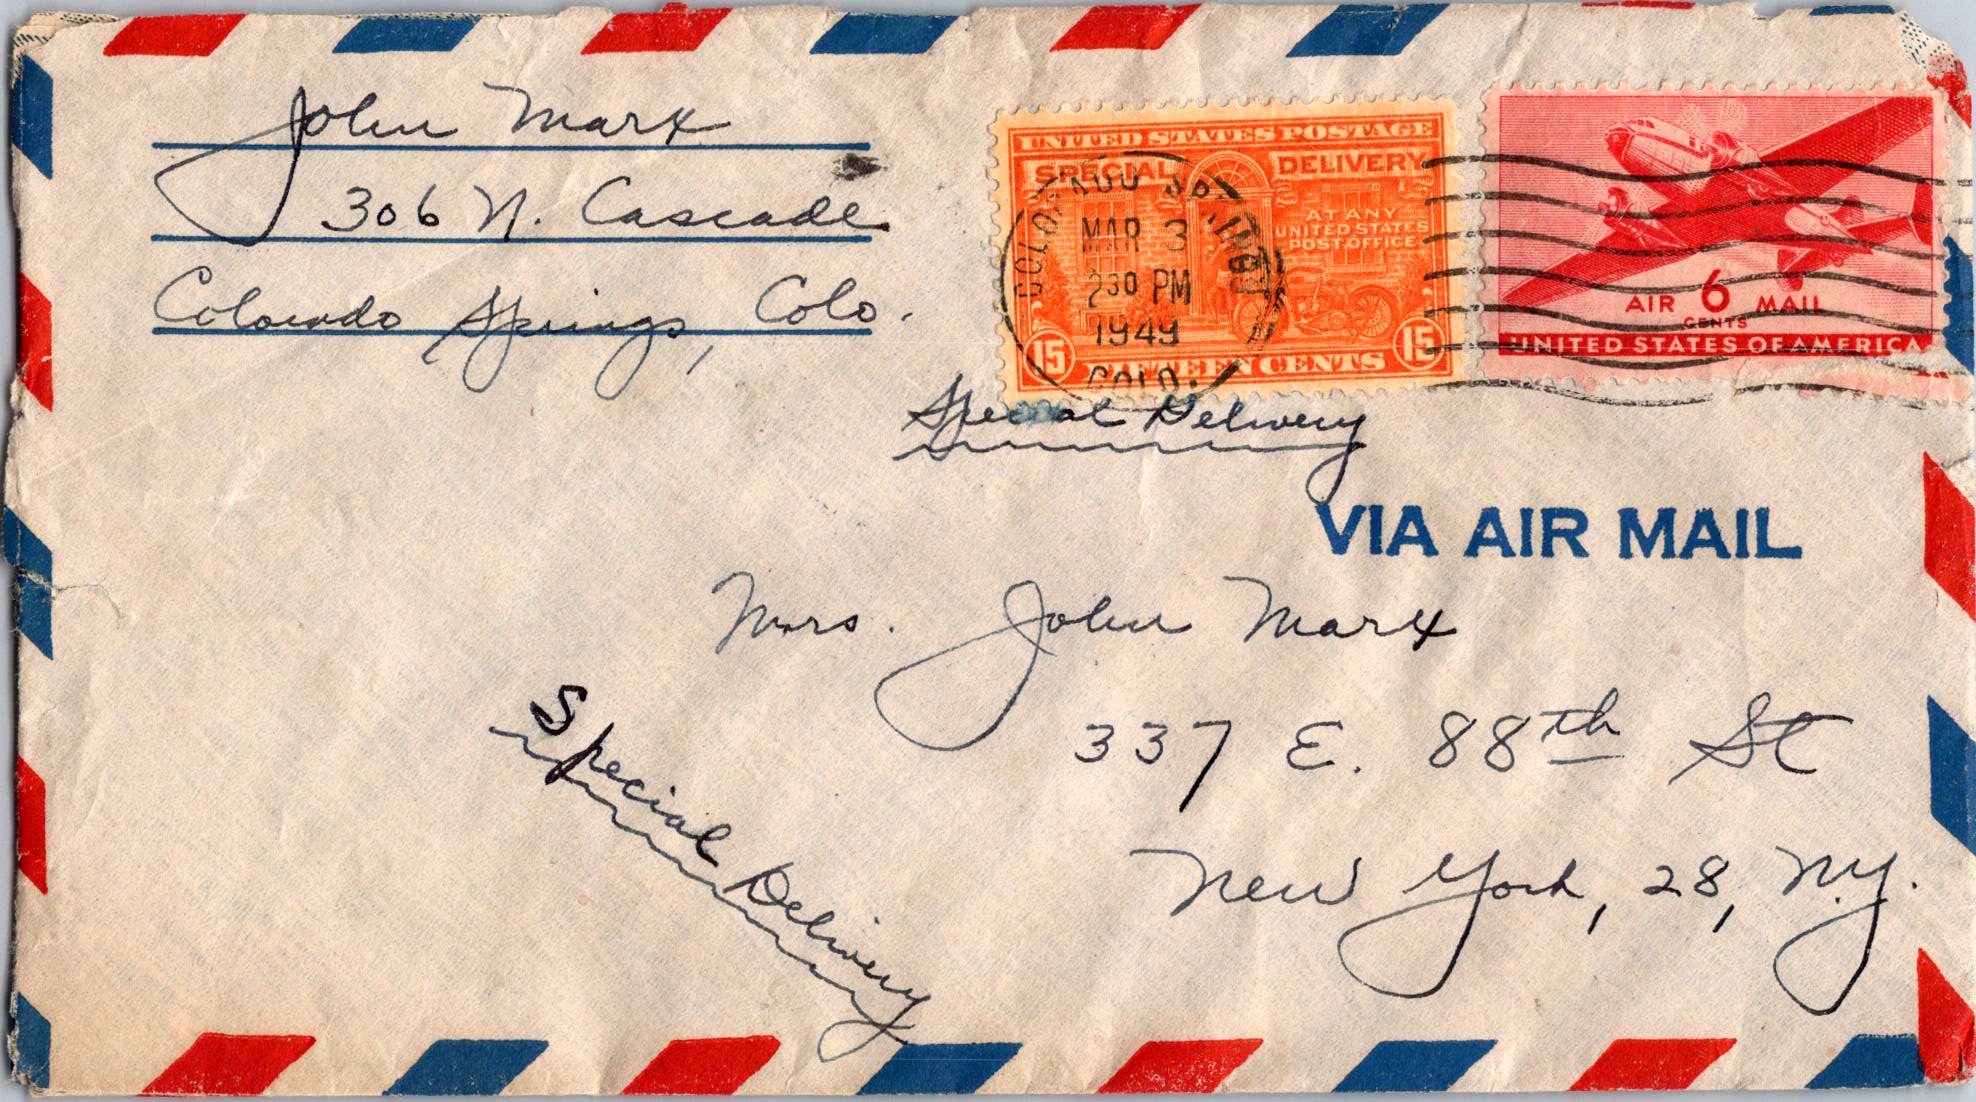 John Marx
306 N. Cascade
Colorado Springs, Colo.
UNITED STATES POSTAGE
SPECIAL DELIVERY
AT ANY
UNITED STATES
POST OFFICE
15 FIFTEEN CENTS 15
COLORADO SPRINGS
MAR 3
230 PM
1949
COLO.
AIR 6 MAIL
CENTS
UNITED STATES OF AMERICA
Special Delivery
VIA AIR MAIL
Mrs. John Marx
337 E. 88th St
New York, 28, N.Y.
Special Delivery